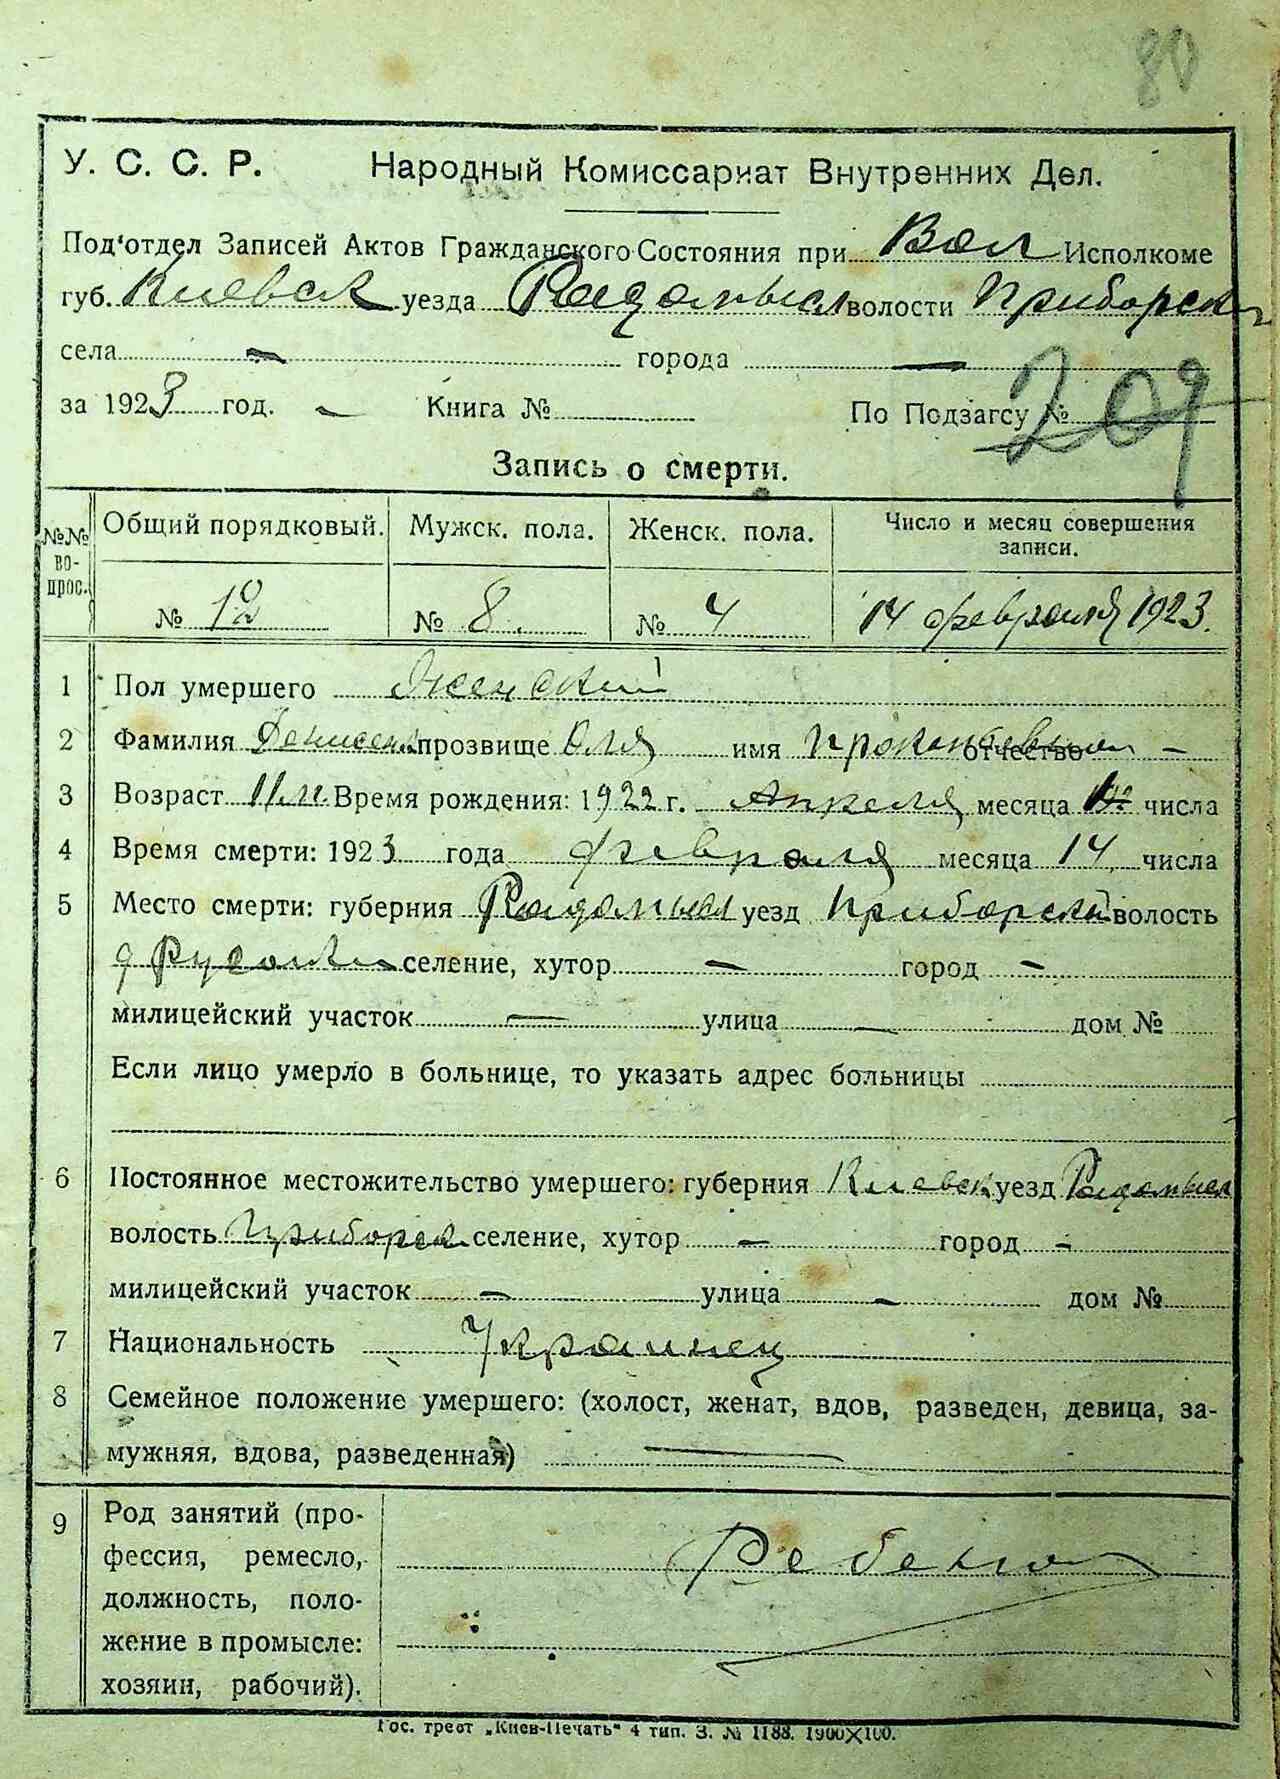 80
У. С. С. Р. Народный Комиссариат Внутренних Дел.
Под'отдел Записей Актов Гражданского Состояния при Вол Исполкоме
губ. Киевск уезда Радомысл волости Приборск
села — города —
за 1923 год. — Книга № По Подзагсу № 209
Запись о смерти.
№№ вопрос. Общий порядковый. Мужск. пола. Женск. пола. Число и месяц совершения записи.
№ 12 № 8 № 4 14 февраля 1923.
1 Пол умершего Женский
2 Фамилия прозвище Оля имя отчество —
3 Возраст 11 м. Время рождения: 1922 г. Апреля месяца числа
4 Время смерти: 1923 года февраля месяца 14 числа
5 Место смерти: губерния Радомысл уезд Приборской волость
д Русаки селение, хутор — город —
милицейский участок — улица — дом №
Если лицо умерло в больнице, то указать адрес больницы
6 Постоянное местожительство умершего: губерния Киевск уезд Радомысл
волость Приборск селение, хутор — город —
милицейский участок — улица — дом №
7 Национальность Украинец
8 Семейное положение умершего: (холост, женат, вдов, разведен, девица, за-
мужняя, вдова, разведенная) —
9 Род занятий (про-
фессия, ремесло, Ребенок
должность, поло-
жение в промысле:
хозяин, рабочий).
Гос. трест „Киев-Печать" 4 тип. З. № 1188. 1900X100.